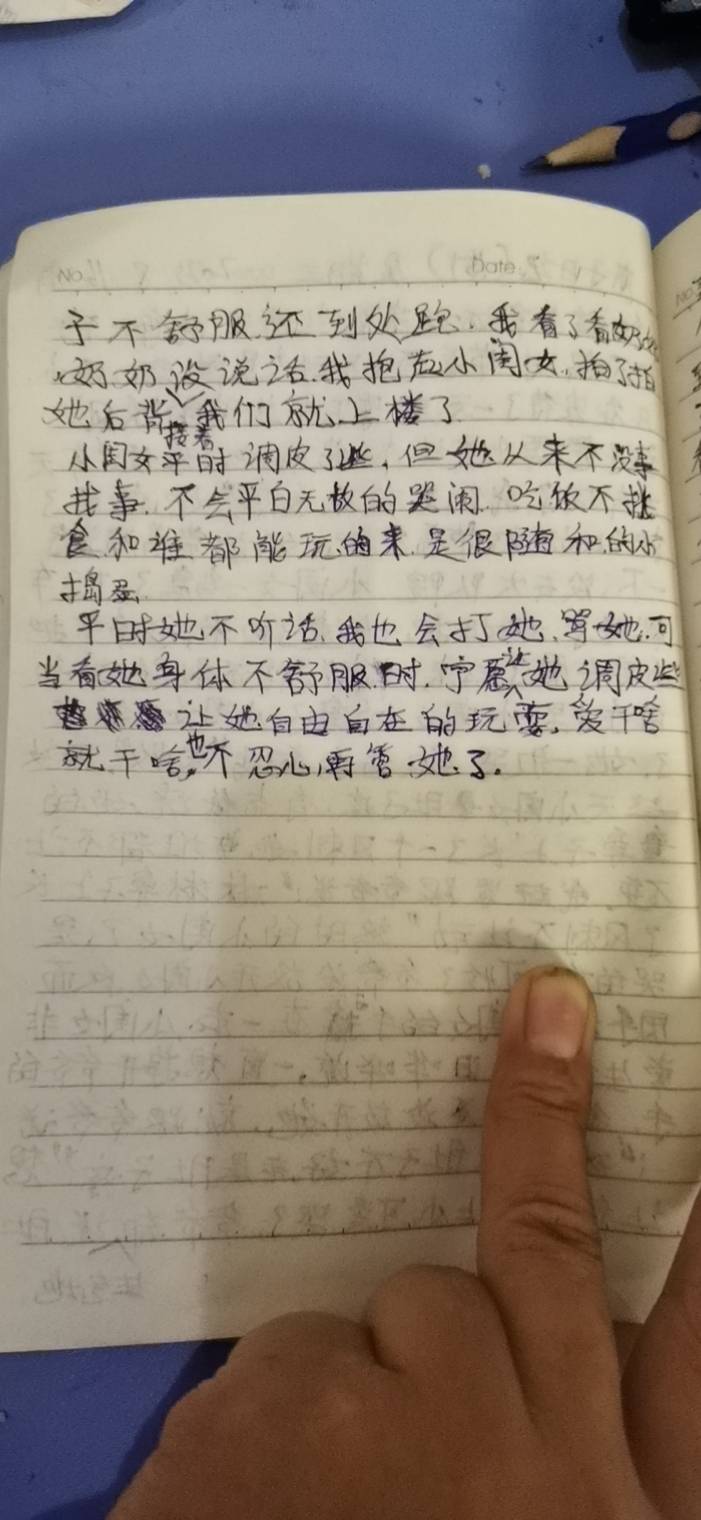 No.
Date
子不舒服还到处跑.我看了看奶奶
奶奶没说话.我抱起小闺女,拍了拍
她后背接着我们就上楼了
小闺女平时调皮了些,但她从来不没事
找事.不会平白无故的哭闹.吃饭不挑
食和谁都能玩的来.是很随和的小
捣蛋
平时她不听话.我也会打她、骂她.可
当看她身体不舒服时.宁愿让她调皮些
让她自由自在的玩耍,爱干啥
就干啥,也不忍心再管她了.